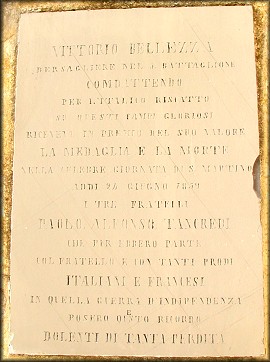 VITTORIO BELLEZZA
BERSAGLIERE NEL BATTAGLIONE
COMBATTENDO
PER L'ITALICO RISCATTO
SU QUESTI CAMPI GLORIOSI
RICEVEA IN PREMIO DEL SUO VALORE
LA MEDAGLIA E LA MORTE
NELLA CELEBRE GIORNATA DI S. MARTINO
ADDI 24 GIUGNO 1859
I TRE FRATELLI
PAOLO, ALFONSO, TANCREDI
CHE PUR EBBERO PARTE
COL FRATELLO E CON TANTI PRODI
ITALIANI E FRANCESI
IN QUELLA GUERRA D'INDIPENDENZA
POSERO QUESTO RICORDO
DOLENTI DI TANTA PERDITA